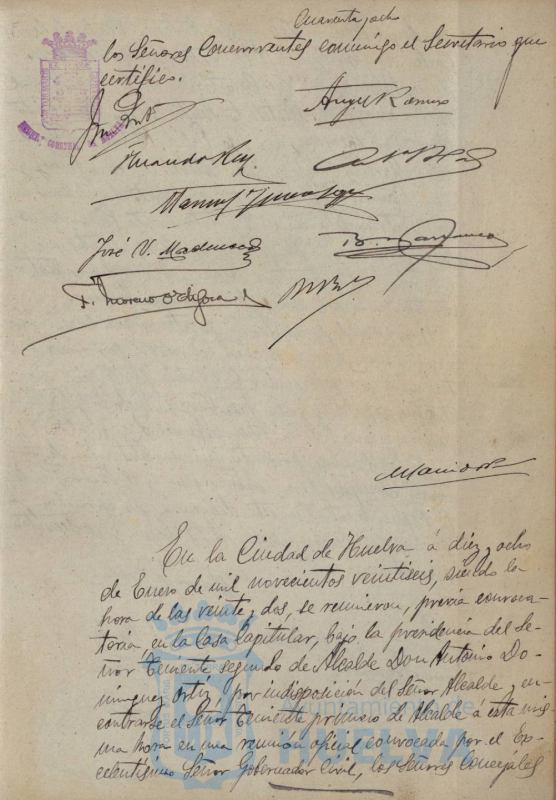 Cuarenta y ocho
los Señores Concurrentes conmigo el Secretario que
certifico.
Angel Ramos
Fernando Rey
José V. Maderuoca
F. Moreno Ortega
En la Ciudad de Huelva á diez y ocho
de Enero de mil novecientos veintiseis, siendo la
hora de las veinte y dos, se reunieron, previa convoca-
toria, en la Casa Capitular, bajo la presidencia del Se-
ñor Teniente segundo de Alcalde Don Antonio Do-
minguez Ortiz por indisposición del Señor Alcalde y en-
contrarse el Señor Teniente primero de Alcalde á esta mis-
ma hora en una reunión oficial convocada por el Ex-
celentísimo Señor Gobernador Civil, los Señores Concejales
Ayuntamiento de
HUELVA